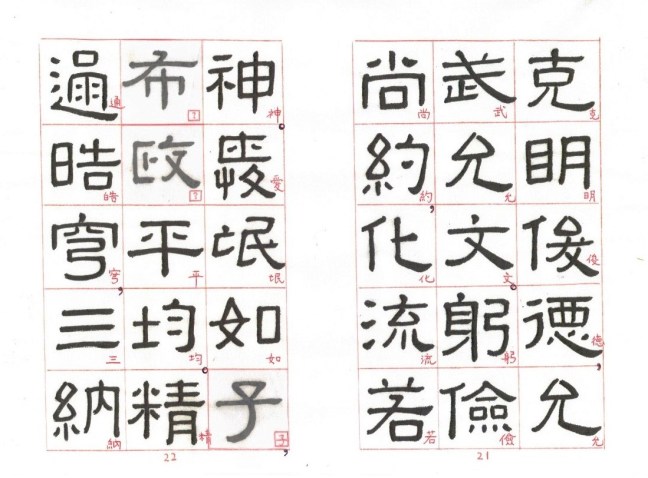 克明俊德,允
武允文。躬儉
尚約,化流若
21
神。愛氓如子,
布政平均。精
通皓穹,三納
22